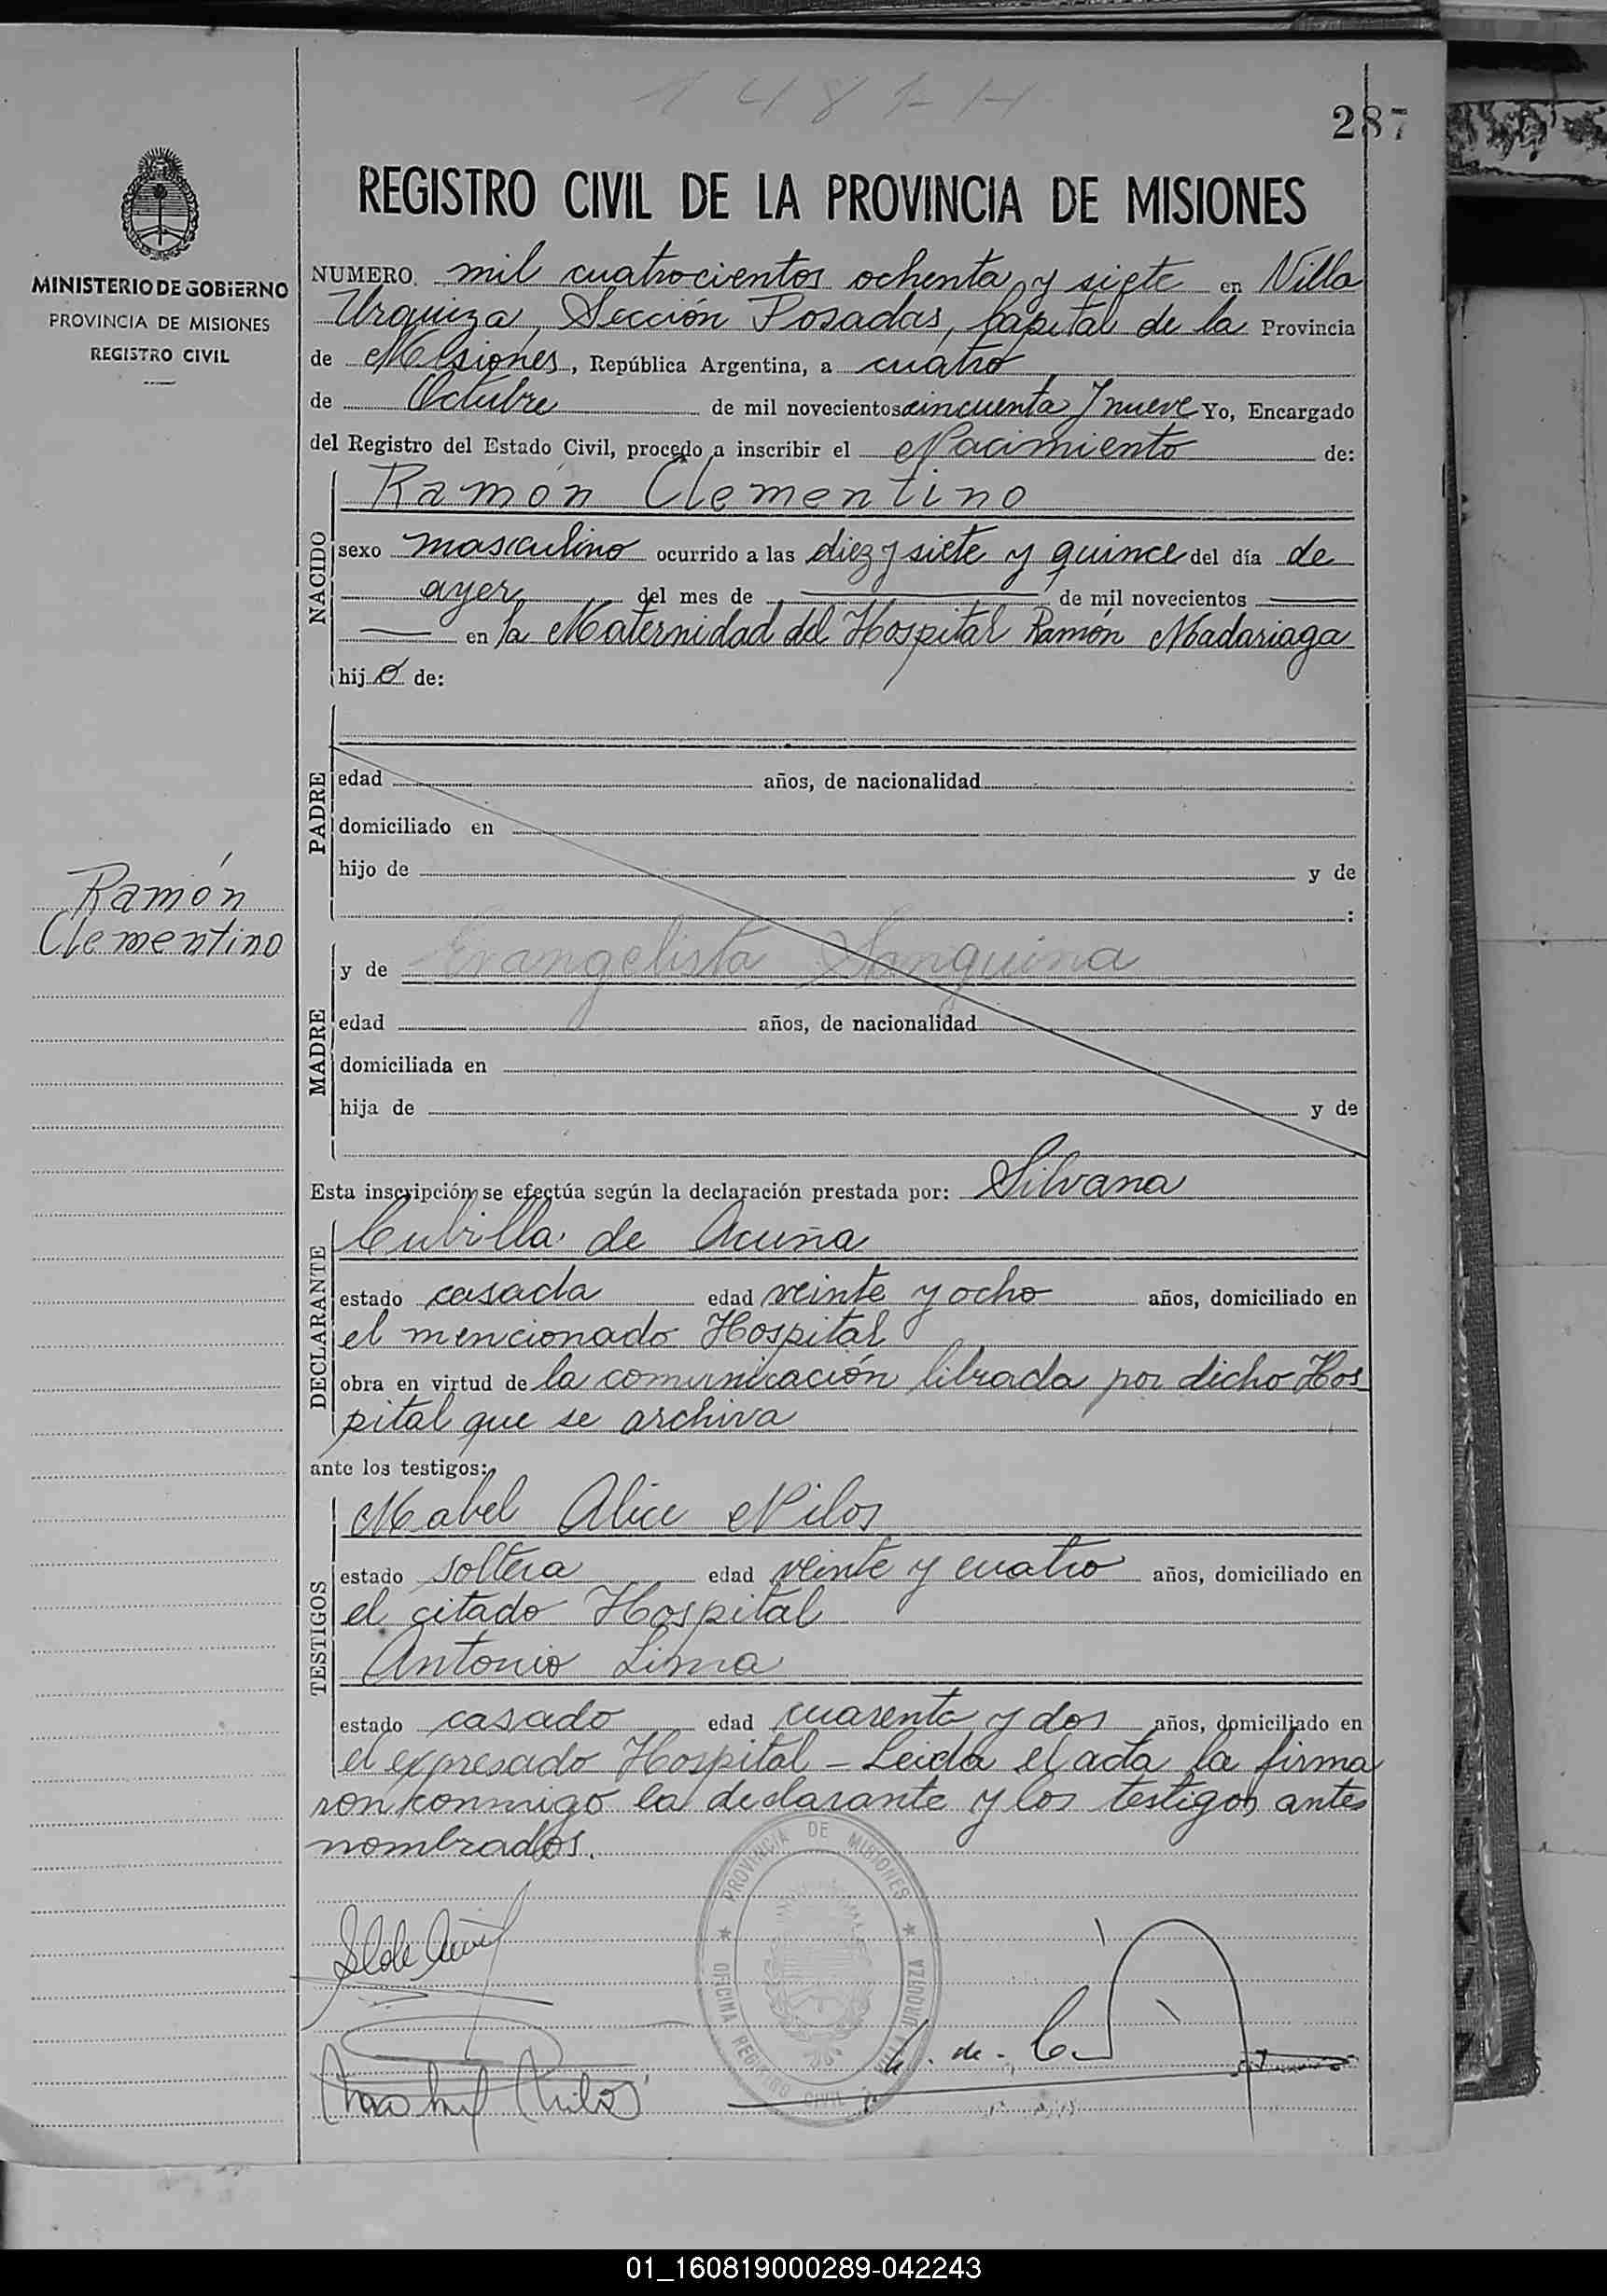 287
REGISTRO CIVIL DE LA PROVINCIA DE MISIONES
MINISTERIO DE GOBIERNO
PROVINCIA DE MISIONES
REGISTRO CIVIL
NUMERO mil cuatrocientos ochenta y siete en Villa
Urquiza, Sección Posadas, Capital de la Provincia
de Misiones, República Argentina, a cuatro
de Octubre de mil novecientos cincuenta y nueve Yo, Encargado
del Registro del Estado Civil, procedo a inscribir el Nacimiento de:
NACIDO
Ramón Clementino
sexo masculino ocurrido a las diez y siete y quince del día de
ayer del mes de de mil novecientos
en la Maternidad del Hospital Ramón Madariaga
hijo de:
PADRE
edad años, de nacionalidad
domiciliado en
hijo de y de
:
Ramón
Clementino
MADRE
y de Evangelista Sanguina
edad años, de nacionalidad
domiciliada en
hija de y de
Esta inscripción se efectúa según la declaración prestada por: Silvana
DECLARANTE
Cubilla de Acuña
estado casada edad veinte y ocho años, domiciliado en
el mencionado Hospital
obra en virtud de la comunicación librada por dicho Hos
pital que se archiva
ante los testigos:
TESTIGOS
Mabel Alice Nilos
estado soltera edad veinte y cuatro años, domiciliado en
el citado Hospital
Antonio Lima
estado casado edad cuarenta y dos años, domiciliado en
el expresado Hospital - Leida el acta la firma
ron conmigo la declarante y los testigos antes
nombrados.
PROVINCIA DE MISIONES
OFICINA REGISTRO CIVIL VILLA URQUIZA
01_160819000289-042243